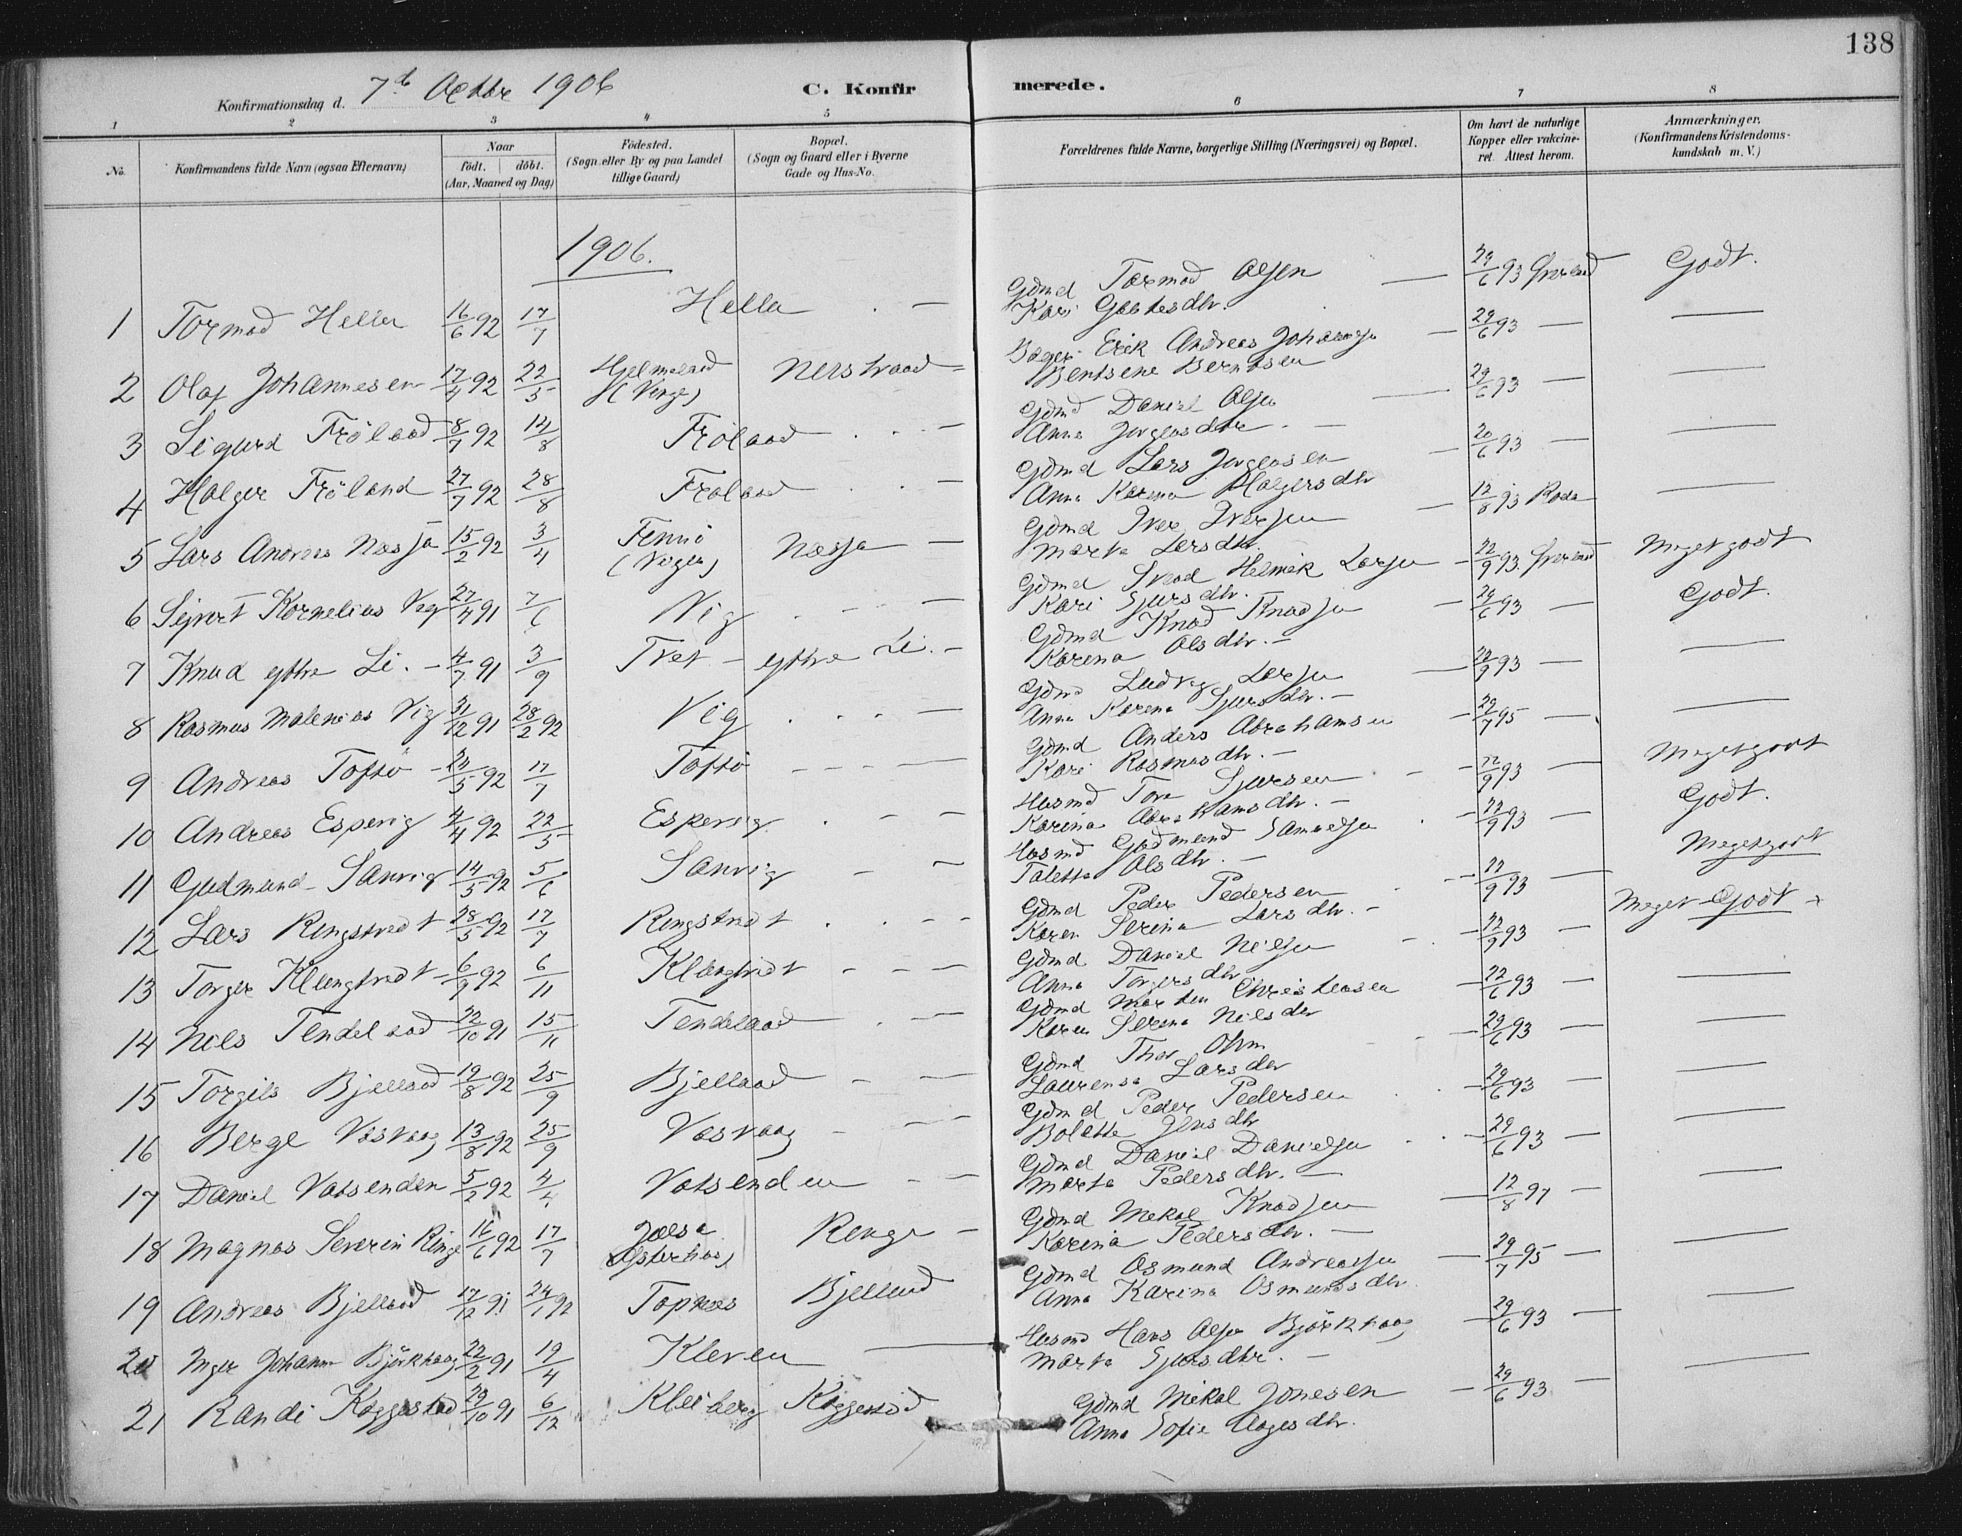 138
Konfirmationsdag d. 7de Octbr 1906 C. Konfirmerede.
1 2 3 4 5 6 7 8
No. Konfirmandens fulde Navn (ogsaa Efternavn) Naar födt. döbt. (Aar, Maaned og Dag) Födested. (Sogn eller By og paa Landet tillige Gaard) Bopæl. (Sogn og Gaard eller i Byerne Gade og Hus-No. Forældrenes fulde Navne, borgerlige Stilling (Næringsvei) og Bopæl. Om havt de naturlige Kopper eller vakcineret. Attest herom. Anmærkninger. (Konfirmandens Kristendomskundskab m. V.)
1906.
1 Tormod Hella 16/6 92 17/7 Hella Gdmd Tormod Olsen 29/6 93 Godt.
Kari Gautesdtr.
2 Olaf Johannesen 17/4 92 22/5 Hjelmeland Nerstraad Erik Andreas Johannesen 29/6 93 —
Bentsene Berntsen
3 Sigurd Fröland 8/7 92 14/8 Frölaad Gdmd Daniel Olsen 29/6 93 —
Anna
4 Holger Fröland 27/7 92 28/8 Frölaad Gdmd Lars 29/6 93 —
Anna Karina Holgersdtr
5 Lars Andreas Næsja 15/2 92 3/4 Fennö Næsja Gdmd Iver Iversen 12/8 93 —
Marta Larsdtr.
6 Sejvert Kornelius Vig 27/4 91 7/6 Vig Gdmd Helmik Larsen 22/9 93 Meget godt
Kari Sjursdtr.
7 Knud ytre Li. 4/7 91 3/9 Tvet ytre Li. Gdmd Knud Knudsen 29/6 93 Godt.
Karena Olsdtr.
8 Rasmus Maleneus Vig 31/12 91 28/2 92 Vig Gdmd Ludvig Larsen 22/9 93 —
Anna Karena Sjursdtr.
9 Andreas Toftö 5 92 17/7 Toftö Gdmd Anders Abrahamsen 29/7 95 —
Kari Rasmusdtr.
10 Andreas Espevig 4/4 92 22/5 Espevig. Husmd Tore Sjursen 22/9 93 Meget godt
Karina Abrahamsdtr.
11 Gudmund Sanvig 14/5 92 5/6 Sanvig Husmd Gudmund Samuelsen 22/9 93 Godt.
Taletta Olsdtr.
12 Lars Ringstvedt 28/5 92 17/7 Ringstvedt Gdmd Peder Pedersen 22/9 93 Meget godt
Karen Serina Larsdtr.
13 Torger Klungtvedt 6/9 92 6/11 Klungtvedt Gdmd Daniel Nilsen 22/9 93 Meget Godt
Anna Torgersdtr
14 Nils Tendelaad 22/10 91 15/11 Tendelaad Gdmd Morten Christensen 22/6 93 —
Karen Serena Nilsdtr
15 Torgils Bjelland 19/8 92 25/9 Bjellaad Gdmd Thor 29/6 93 —
Laurensa Larsdtr
16 Berge Vasvaag 13/8 92 25/9 Vasvaag Gdmd Peder Pedersen 29/6 93 —
Bolette Jensdtr
17 Daniel Vatsenden 5/2 92 4/4 Vatsenden Gdmd Daniel Danielsen 29/6 93 —
Marta Pedersdtr.
18 Magnus Severin Ringe 16/6 92 17/7 Jælsa Renge Gdmd Mikal Knudsen 12/8 97 —
Karina Pedersdtr.
19 Andreas Bjelland 17/12 91 24/1 92 Topnes Bjelland Gdmd Osmund Andreassen 29/7 95 —
Anna Karina Osmundsdtr.
20 Inger Johanne Björkhaug 22/2 91 19/4 Kleven Husmd Hans Olsen Björkhaug 29/6 93 —
Marta Sjursdtr.
21 Randi Kyggestad 10 91 6/12 Kleiberg Kyggestad Gdmd Mikal Jonesen 29/6 93 —
Anna Sofie Aagesdtr.